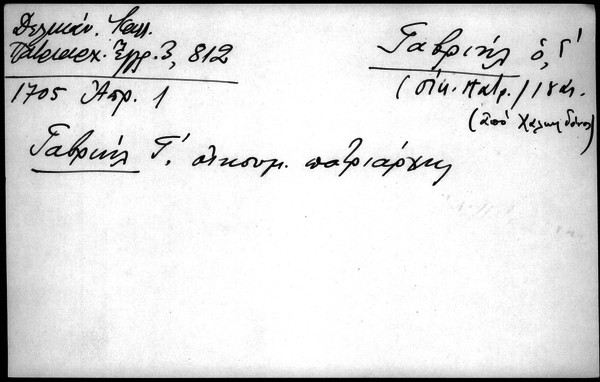 Δελικάν. Καλλ.
Πατριαρχ. Ἔγγρ. 3, 812
1705 Ἀπρ. 1
Γαβριήλ ὁ, Γ΄
(οἰκ. πατρ.)
(ἀπό Χαλκηδόνος)
Γαβριήλ Γ΄. οἰκουμ. πατριάρχης